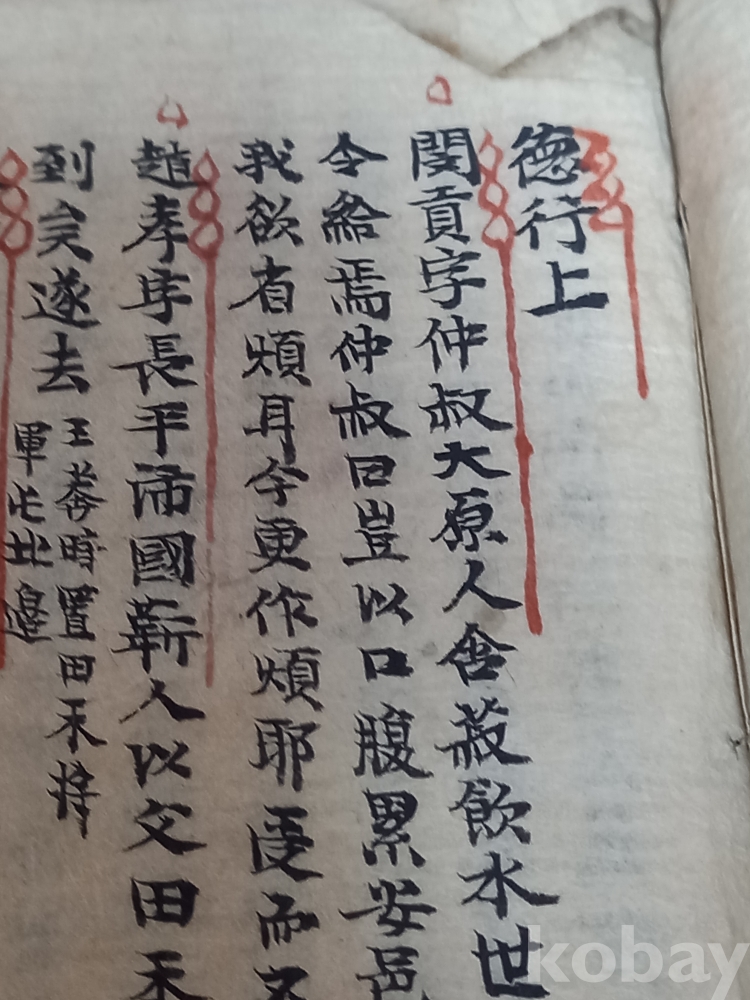 徳行上
閔貢字仲叔大原人含菽飲水世
令給焉仲叔曰豈以口腹累安邑
我欲省煩耳今更作煩耶受而不
趙孝字長平沛國蘄人以父田禾
到矣遂去
王莽時置田禾將
軍屯北邊
kobay